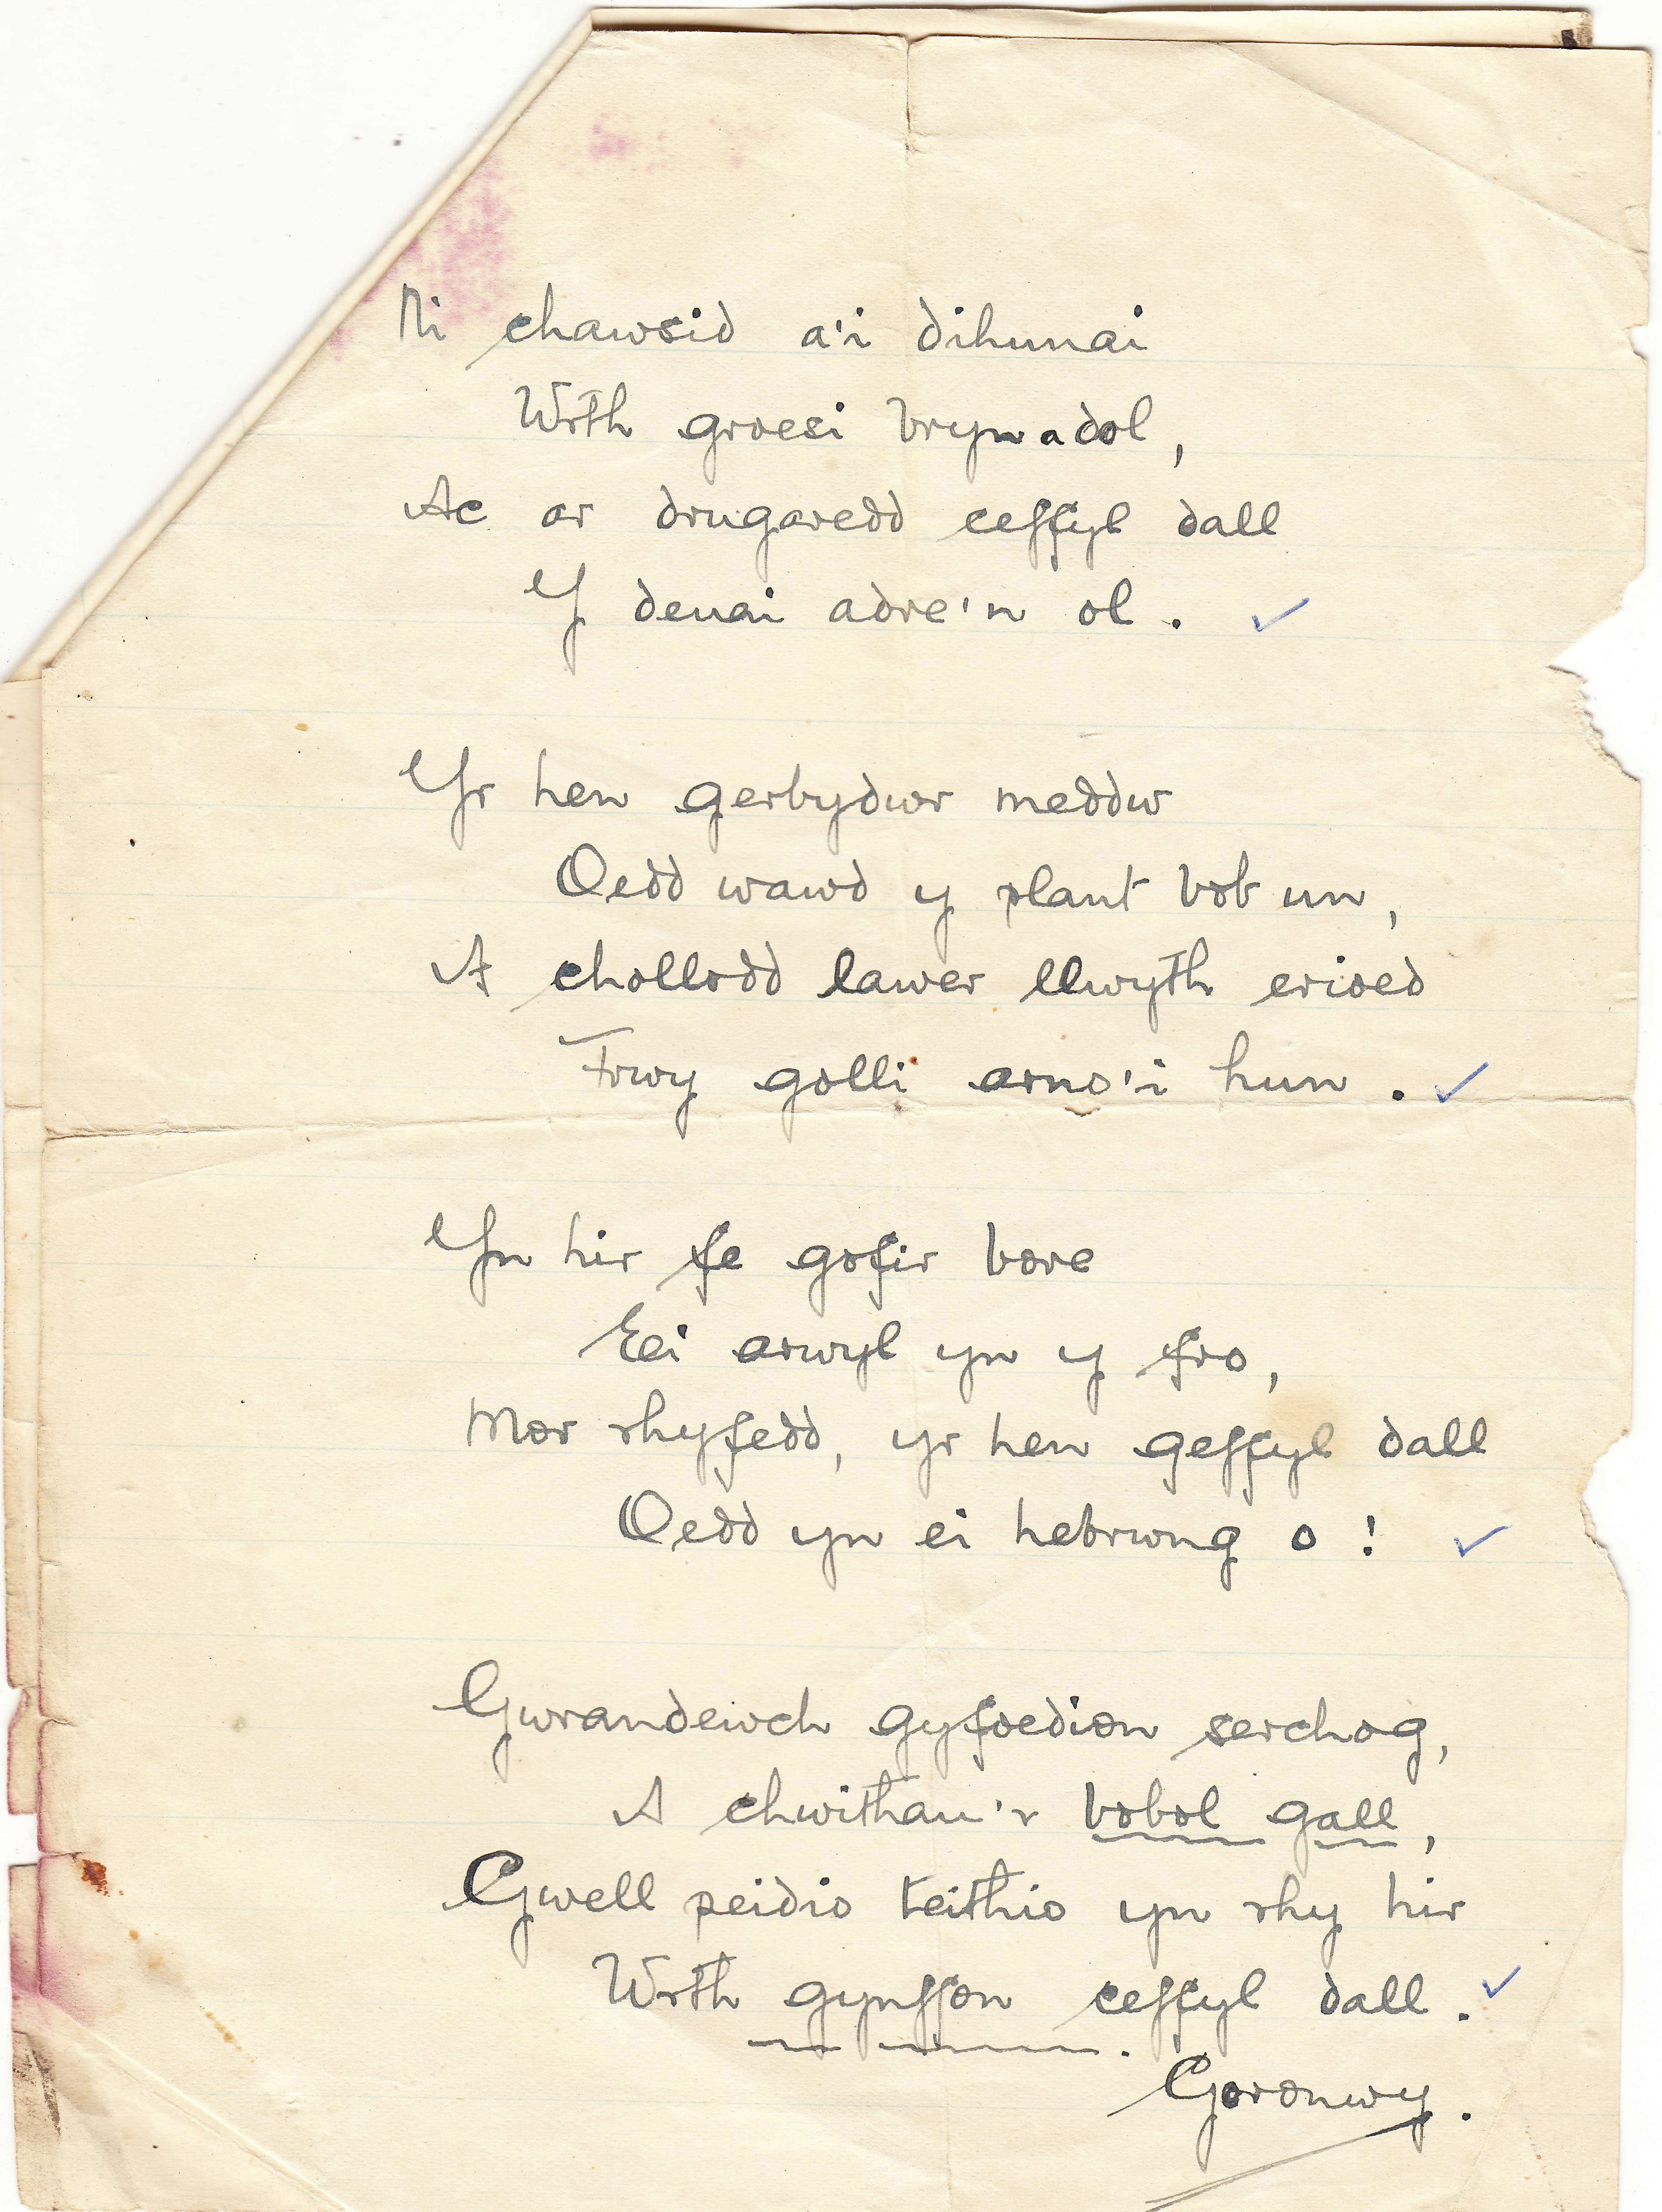 Ni chawsid a'i dihunai
Wrth groesi bryn a dol,
Ac ar drugaredd ceffyl dall
Y deuai adre'n ol.
Yr hen gerbydwr meddw
Oedd wawd y plant bob un,
A chollodd lawer llwyth erioed
Trwy golli arno'i hun.
Yn hir fe gofir bore
Ei arwyl yn y fro,
Mor rhyfedd, yr hen geffyl dall
Oedd yn ei hebrwng o!
Gwrandewch gyfoedion serchog,
A chwithau'r bobol gall,
Gwell peidio teithio yn rhy hir
Wrth gynffon ceffyl dall.
Goronwy.